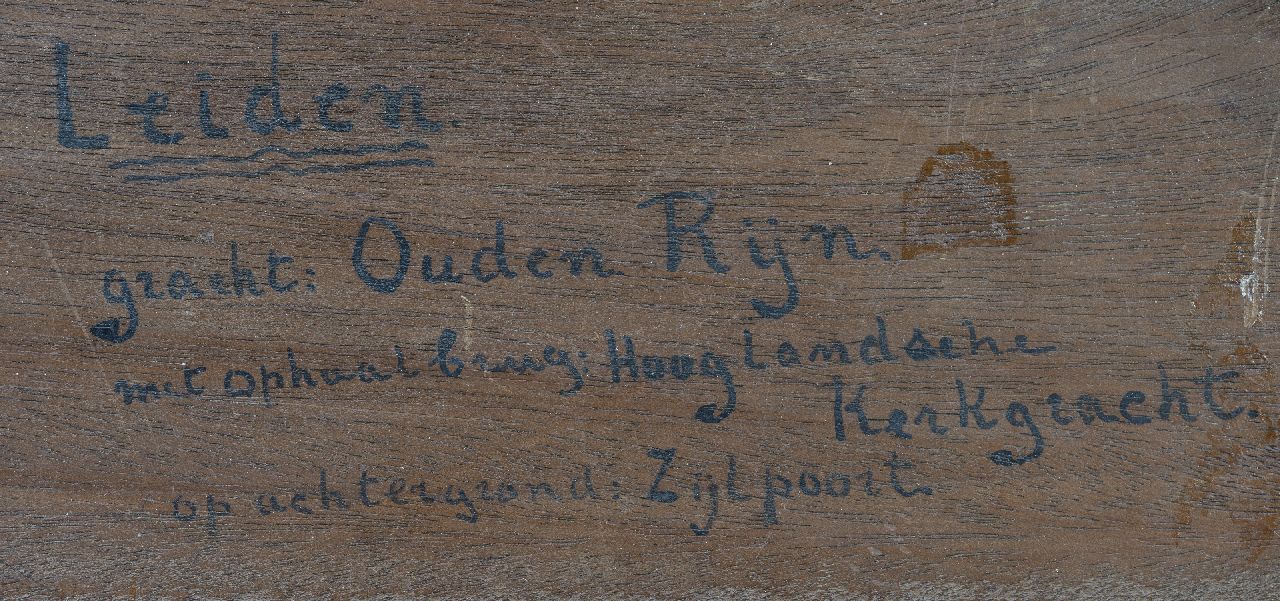 Leiden.
gracht: Ouden Rijn.
met ophaal brug: Hooglandsche
Kerkgracht.
op achtergrond: Zijlpoort.